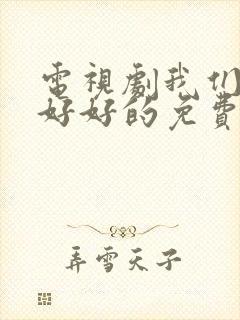 電視劇我们
好好的免費
弄雪天子